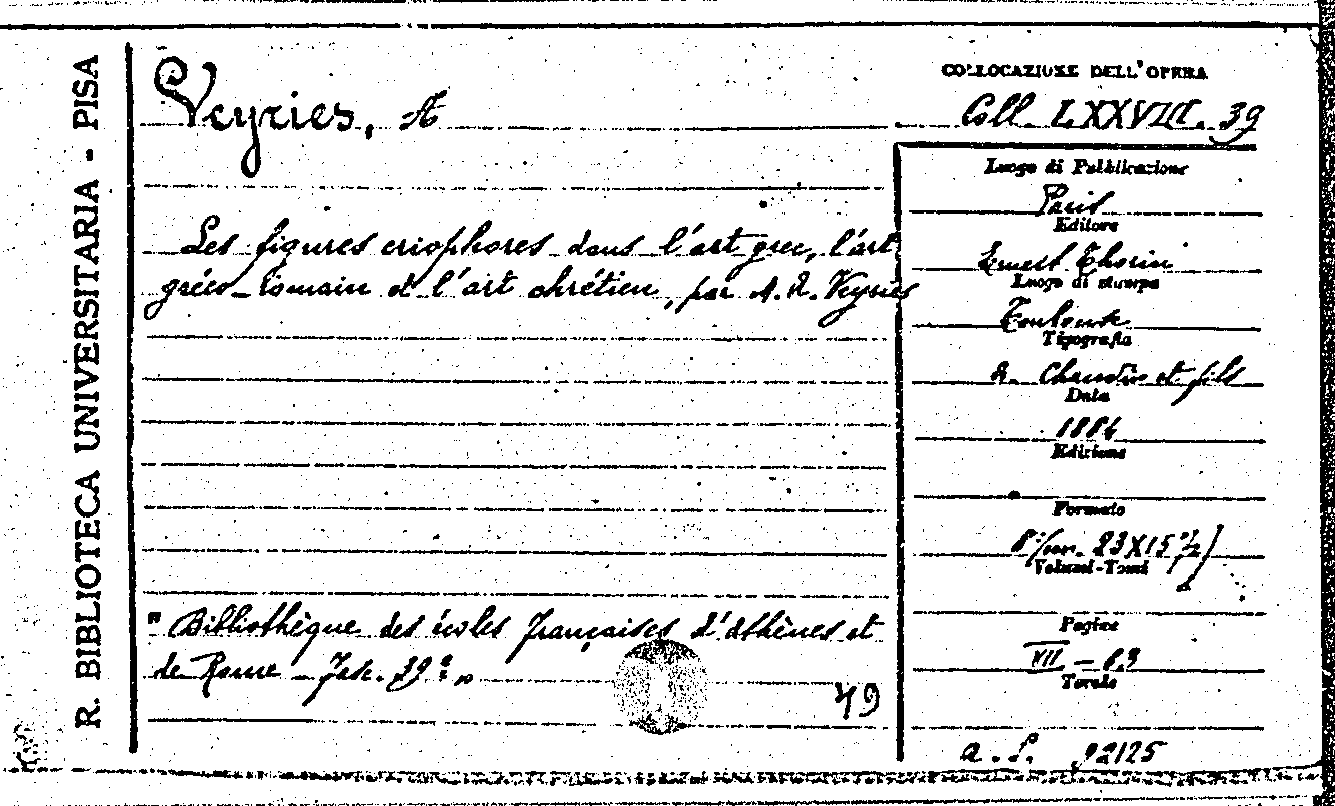 R. BIBLIOTECA UNIVERSITARIA - PISA
Veyries, A
Les figures criophores dans l'art grec, l'art
gréco-romain et l'art chrétien, par A. Veyries
"Bibliothèque des écoles françaises d'Athènes et
de Rome - Fasc. 39e"
49
COLLOCAZIONE DELL'OPERA
Coll. LXXVIII. 39
Luogo di Pubblicazione
Paris
Editore
Ernest Thorin
Luogo di stampa
Toulouse
Tipografia
A. Chauvin et fils
Data
1884
Edizione
Formato
8°(cm. 23X15 1/2)
Volumi-Tomi
Pagine
VII - 83
Tavole
a. L. 92125